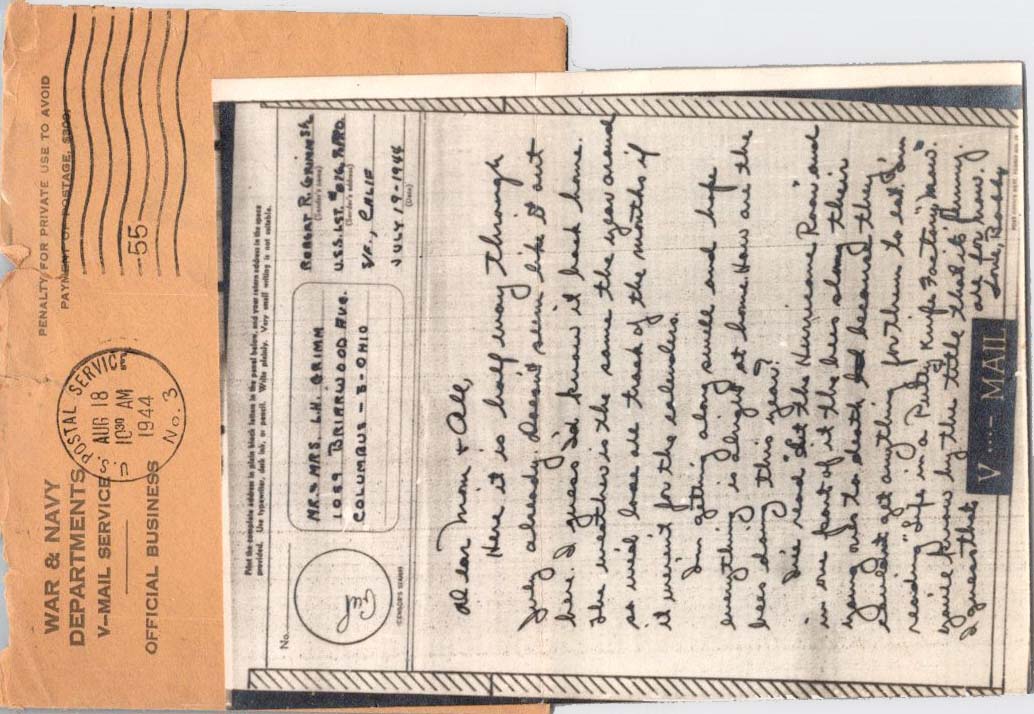 WAR & NAVY
DEPARTMENTS
V-MAIL SERVICE
OFFICIAL BUSINESS
U.S. POSTAL SERVICE
AUG 18
10 30 AM
1944
No. 3
PENALTY FOR PRIVATE USE TO AVOID
PAYMENT OF POSTAGE, $300
55
Print the complete address in plain block letters in the panel below, and your return address in the space
provided. Use typewriter, dark ink, or pencil. Write plainly. Very small writing is not suitable.
No.
(CENSOR'S STAMP)
MR & MRS. L.H. GRIMM
1029 BRIARWOOD AVE.
COLUMBUS - 3 - OHIO
ROBERT R. GRIMM
(Sender's name)
U.S.S. LST. # 876
(Sender's address)
S/F., CALIF
JULY 19 - 1944
(Date)
Dear Mom & All,
Here it is half way through
July already. Doesn't seem like it out
here. I guess I'd know it back home.
The weather is the same the year around
so we'd loose all track of the months if
it weren't for the calenders.
I'm getting along swell and hope
everything is alright at home. How are the
bees doing this year?
I've read "Let the Hurricane Roar" and
in one part of it the bees stung their
young ones to death because they
couldn't get anything for them to eat. I'm
reading "Life in a Putty Knife Factory" now.
You'll know by the title that it's funny.
I guess that's all for now.
Love, Bobby
V···- MAIL